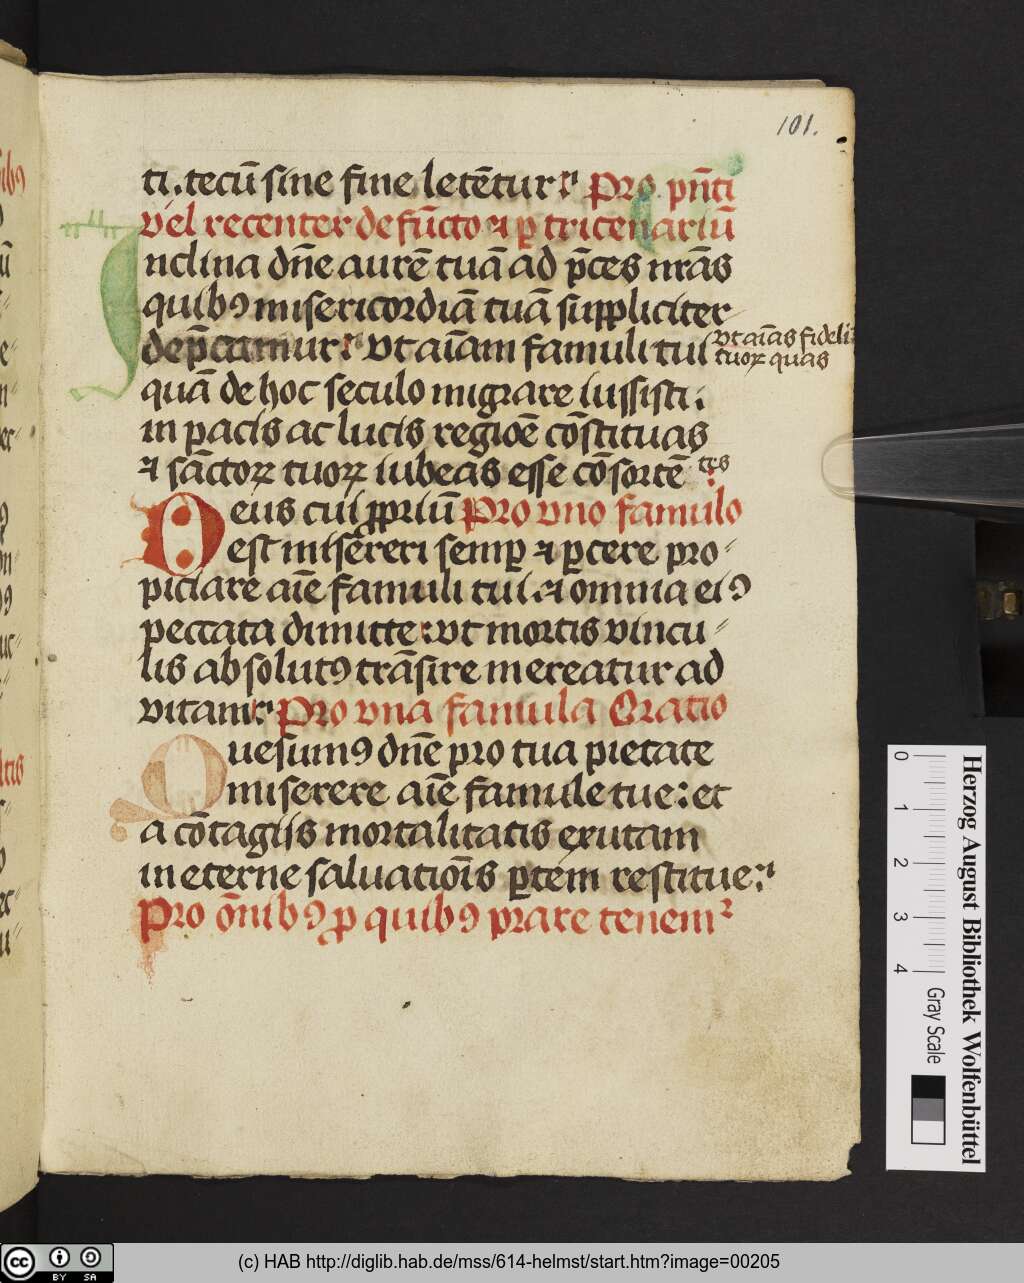 101.
ti. tecū sine fine letētur: Pro pn̄ti
vel recenter defūcto ⁊ p tricenariū
Inclina dn̄e aurē tuā ad p̄ces nr̄as
quibꝯ misericordiā tuā suppliciter
dep̄camur: vt aīam famuli tui
vt aīas fideliū
tuoꝝ quas
quā de hoc seculo migrare iussisti:
in pacis ac lucis regiōe cōstituas
⁊ sāctoꝝ tuoꝝ iubeas esse cōsortē
tes
Deus cui ꝓpriū Pro vno famulo
est miserereri semꝑ ⁊ ꝑcere pro-
piciare aīe famuli tui ⁊ omnia eiꝯ
peccata dimitte: vt mortis vincu-
lis absolutꝯ trāsire mereatur ad
vitam: Pro vna famula Oratio
Quesumꝯ dn̄e pro tua pietate
miserere aīe famule tue: et
a cōtagijs mortalitatis exutam
in eterne saluatiōis ꝑtem restitue:
Pro ōnibꝯ ꝓ quibꝯ orare tenemᷣ
0 1 2 3 4
Gray Scale
Herzog August Bibliothek Wolfenbüttel
cc BY SA
(c) HAB http://diglib.hab.de/mss/614-helmst/start.htm?image=00205